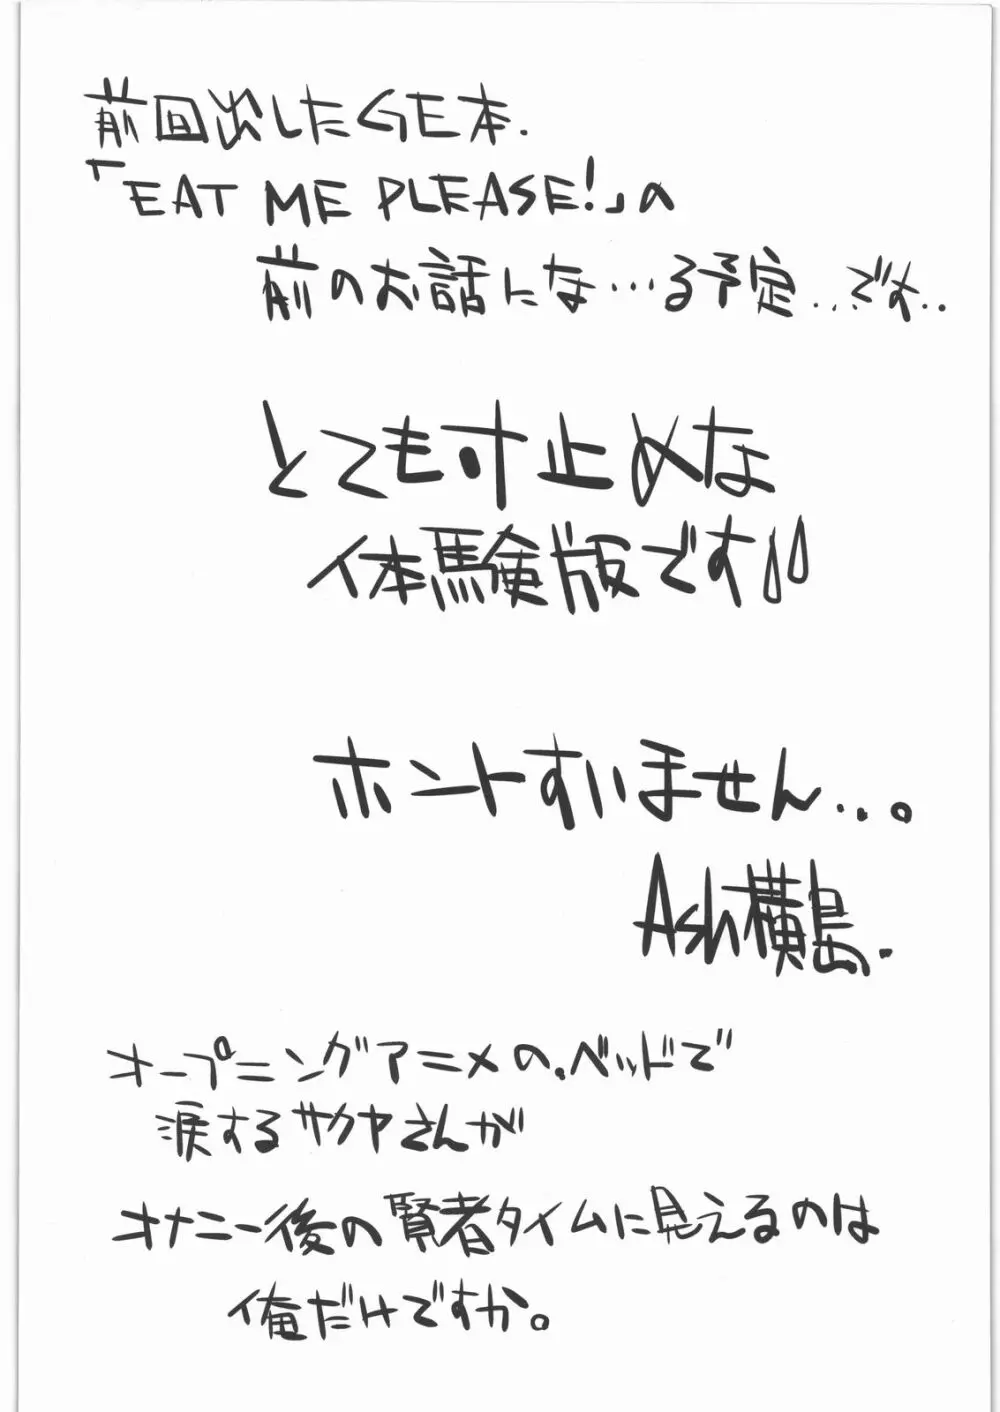 前回出したGE本.
「EAT ME PLEASE!」の
前のお話にな…る予定..、です..
とても寸止めな
体験版です!!
ホントすいません...。
Ash横島.
オープニングアニメの、ベッドで
涙するサクヤさんが
オナニー後の賢者タイムに見えるのは
俺だけですか。